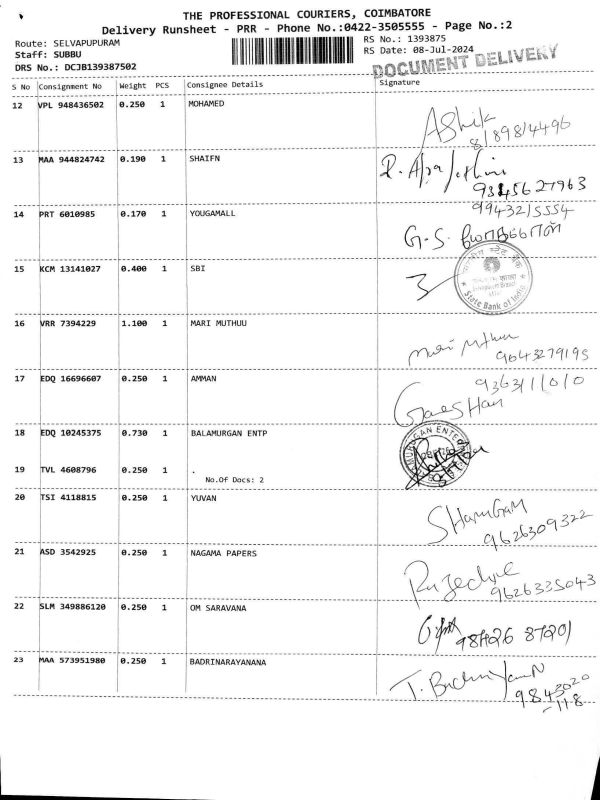 THE PROFESSIONAL COURIERS, COIMBATORE
Delivery Runsheet - PRR - Phone No.:0422-3505555 - Page No.:2
Route: SELVAPUPURAM
RS No.: 1393875
Staff: SUBBU
RS Date: 08-Jul-2024
DRS No.: DCJB139387502
DOCUMENT DELIVERY
S No Consignment No Weight PCS Consignee Details Signature
12 VPL 948436502 0.250 1 MOHAMED
Ashik
13 MAA 944824742 0.190 1 SHAIFN
9345627963
14 PRT 6010985 0.170 1 YOUGAMALL
9943215554
G.S.
15 KCM 13141027 0.400 1 SBI
State Bank of India
16 VRR 7394229 1.100 1 MARI MUTHUU
9643279195
17 EDQ 16696607 0.250 1 AMMAN
936311010
Ganeshan
18 EDQ 10245375 0.730 1 BALAMURGAN ENTP
19 TVL 4608796 0.250 1 .
No.Of Docs: 2
20 TSI 4118815 0.250 1 YUVAN
9626309322
21 ASD 3542925 0.250 1 NAGAMA PAPERS
9626335043
22 SLM 349886120 0.250 1 OM SARAVANA
98426 87201
23 MAA 573951980 0.250 1 BADRINARAYANANA
9843020
-118